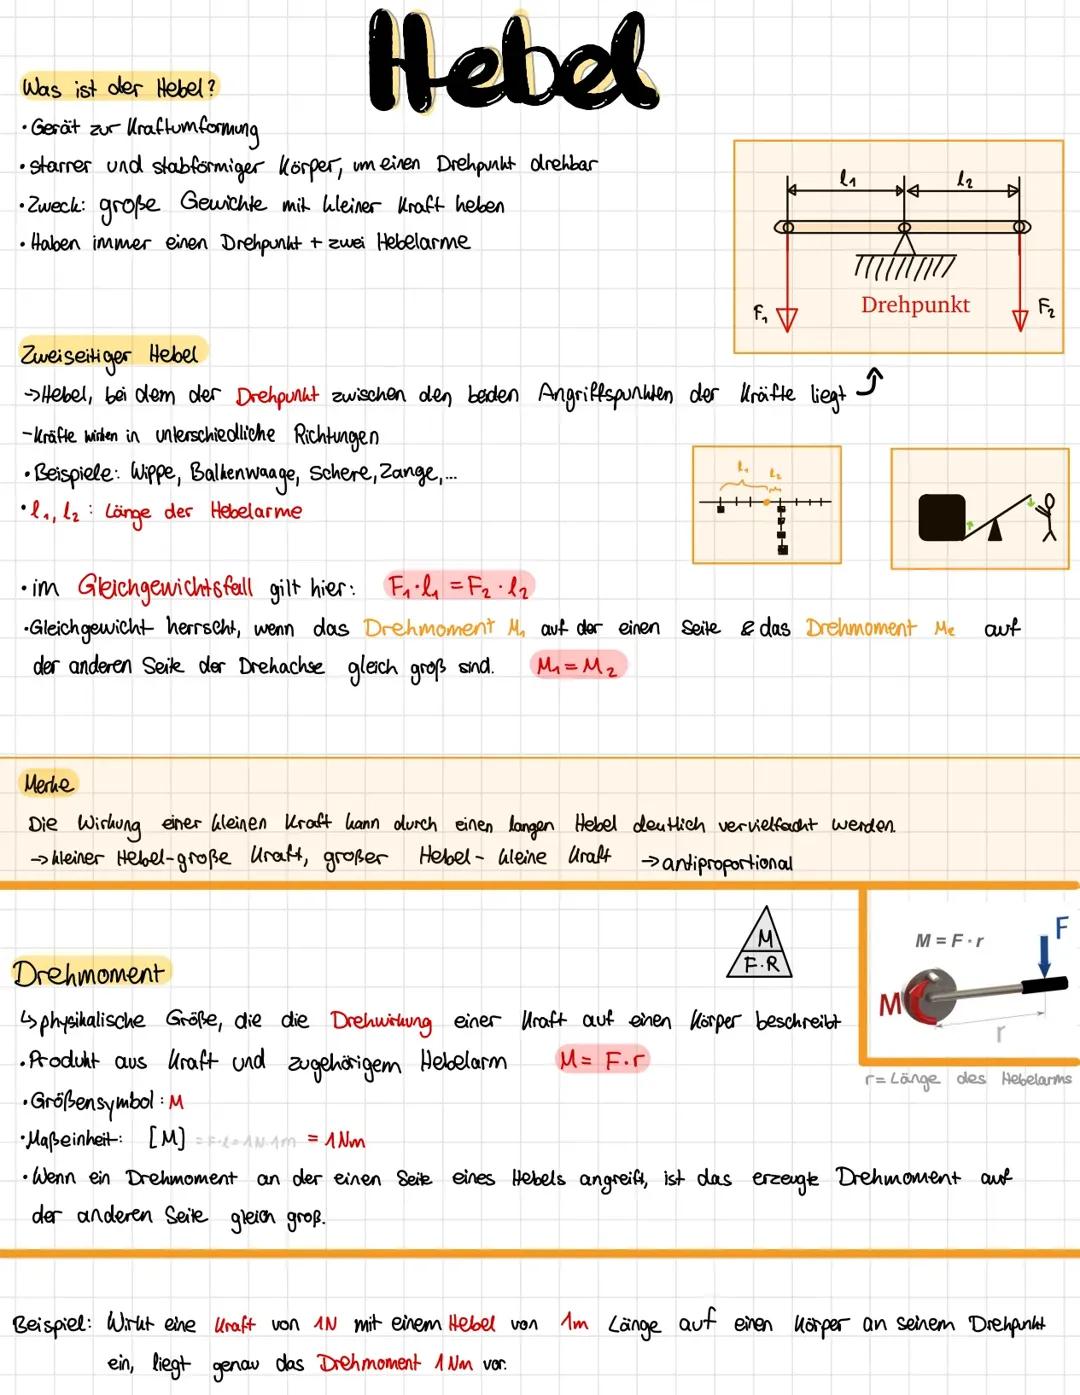 Hebel
Was ist der Hebel?
• Gerät zur Kraftumformung
• starrer und stabförmiger Körper, um einen Drehpunkt drehbar
• Zweck: große Gewichte mit kleiner Kraft heben
• Haben immer einen Drehpunkt + zwei Hebelarme
l₁ l₂
F₁ Drehpunkt F₂
Zweiseitiger Hebel
→ Hebel, bei dem der Drehpunkt zwischen den beiden Angriffspunkten der Kräfte liegt
- Kräfte wirken in unterschiedliche Richtungen
• Beispiele: Wippe, Balkenwaage, Schere, Zange,...
• l₁, l₂ : Länge der Hebelarme
l₁ l₂
• im Gleichgewichtsfall gilt hier: F₁·l₁ = F₂·l₂
• Gleichgewicht herrscht, wenn das Drehmoment M₁ auf der einen Seite & das Drehmoment M₂ auf
der anderen Seite der Drehachse gleich groß sind. M₁ = M₂
Merke
Die Wirkung einer kleinen Kraft kann durch einen langen Hebel deutlich vervielfacht werden.
→ kleiner Hebel - große Kraft, großer Hebel - kleine Kraft → antiproportional
M
F·R
M = F·r
F
M
r
r = Länge des Hebelarms
Drehmoment
↳ physikalische Größe, die die Drehwirkung einer Kraft auf einen Körper beschreibt
• Produkt aus Kraft und zugehörigem Hebelarm M = F·r
• Größensymbol : M
• Maßeinheit: [M] = F·l = 1N·1m = 1 Nm
• Wenn ein Drehmoment an der einen Seite eines Hebels angreift, ist das erzeugte Drehmoment auf
der anderen Seite gleich groß.
Beispiel: Wirkt eine Kraft von 1N mit einem Hebel von 1m Länge auf einen Körper an seinem Drehpunkt
ein, liegt genau das Drehmoment 1 Nm vor.